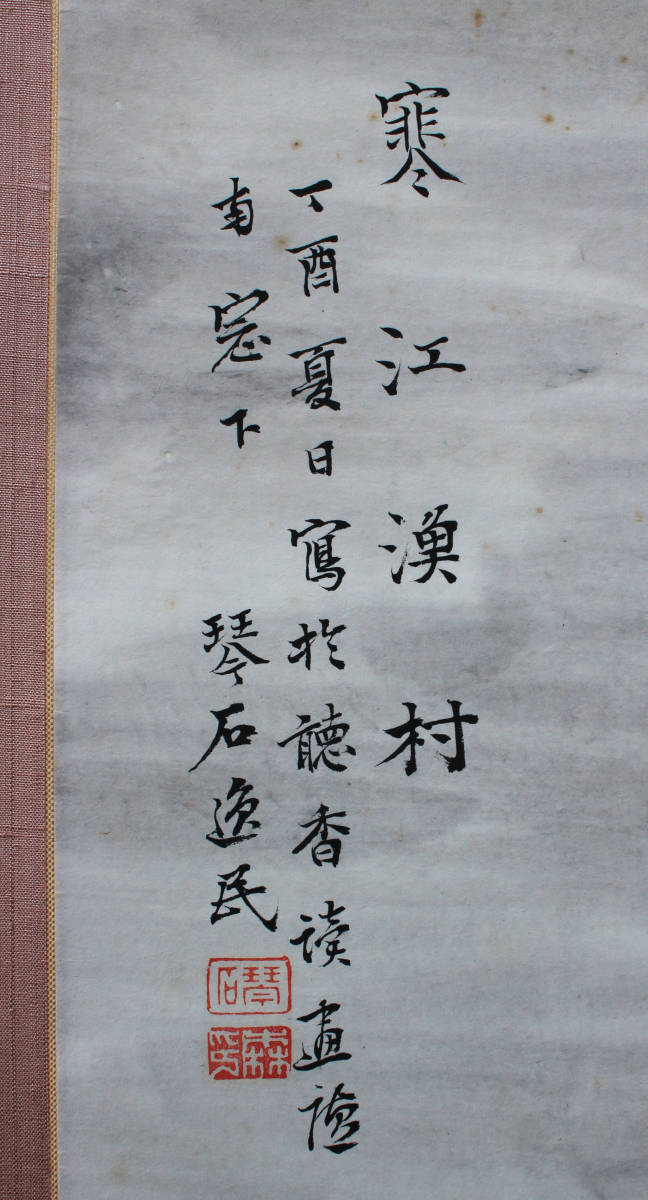 寒江漁村
丁酉夏日寫於聽香讀畫
南窓下 琴石逸民
琴石
森